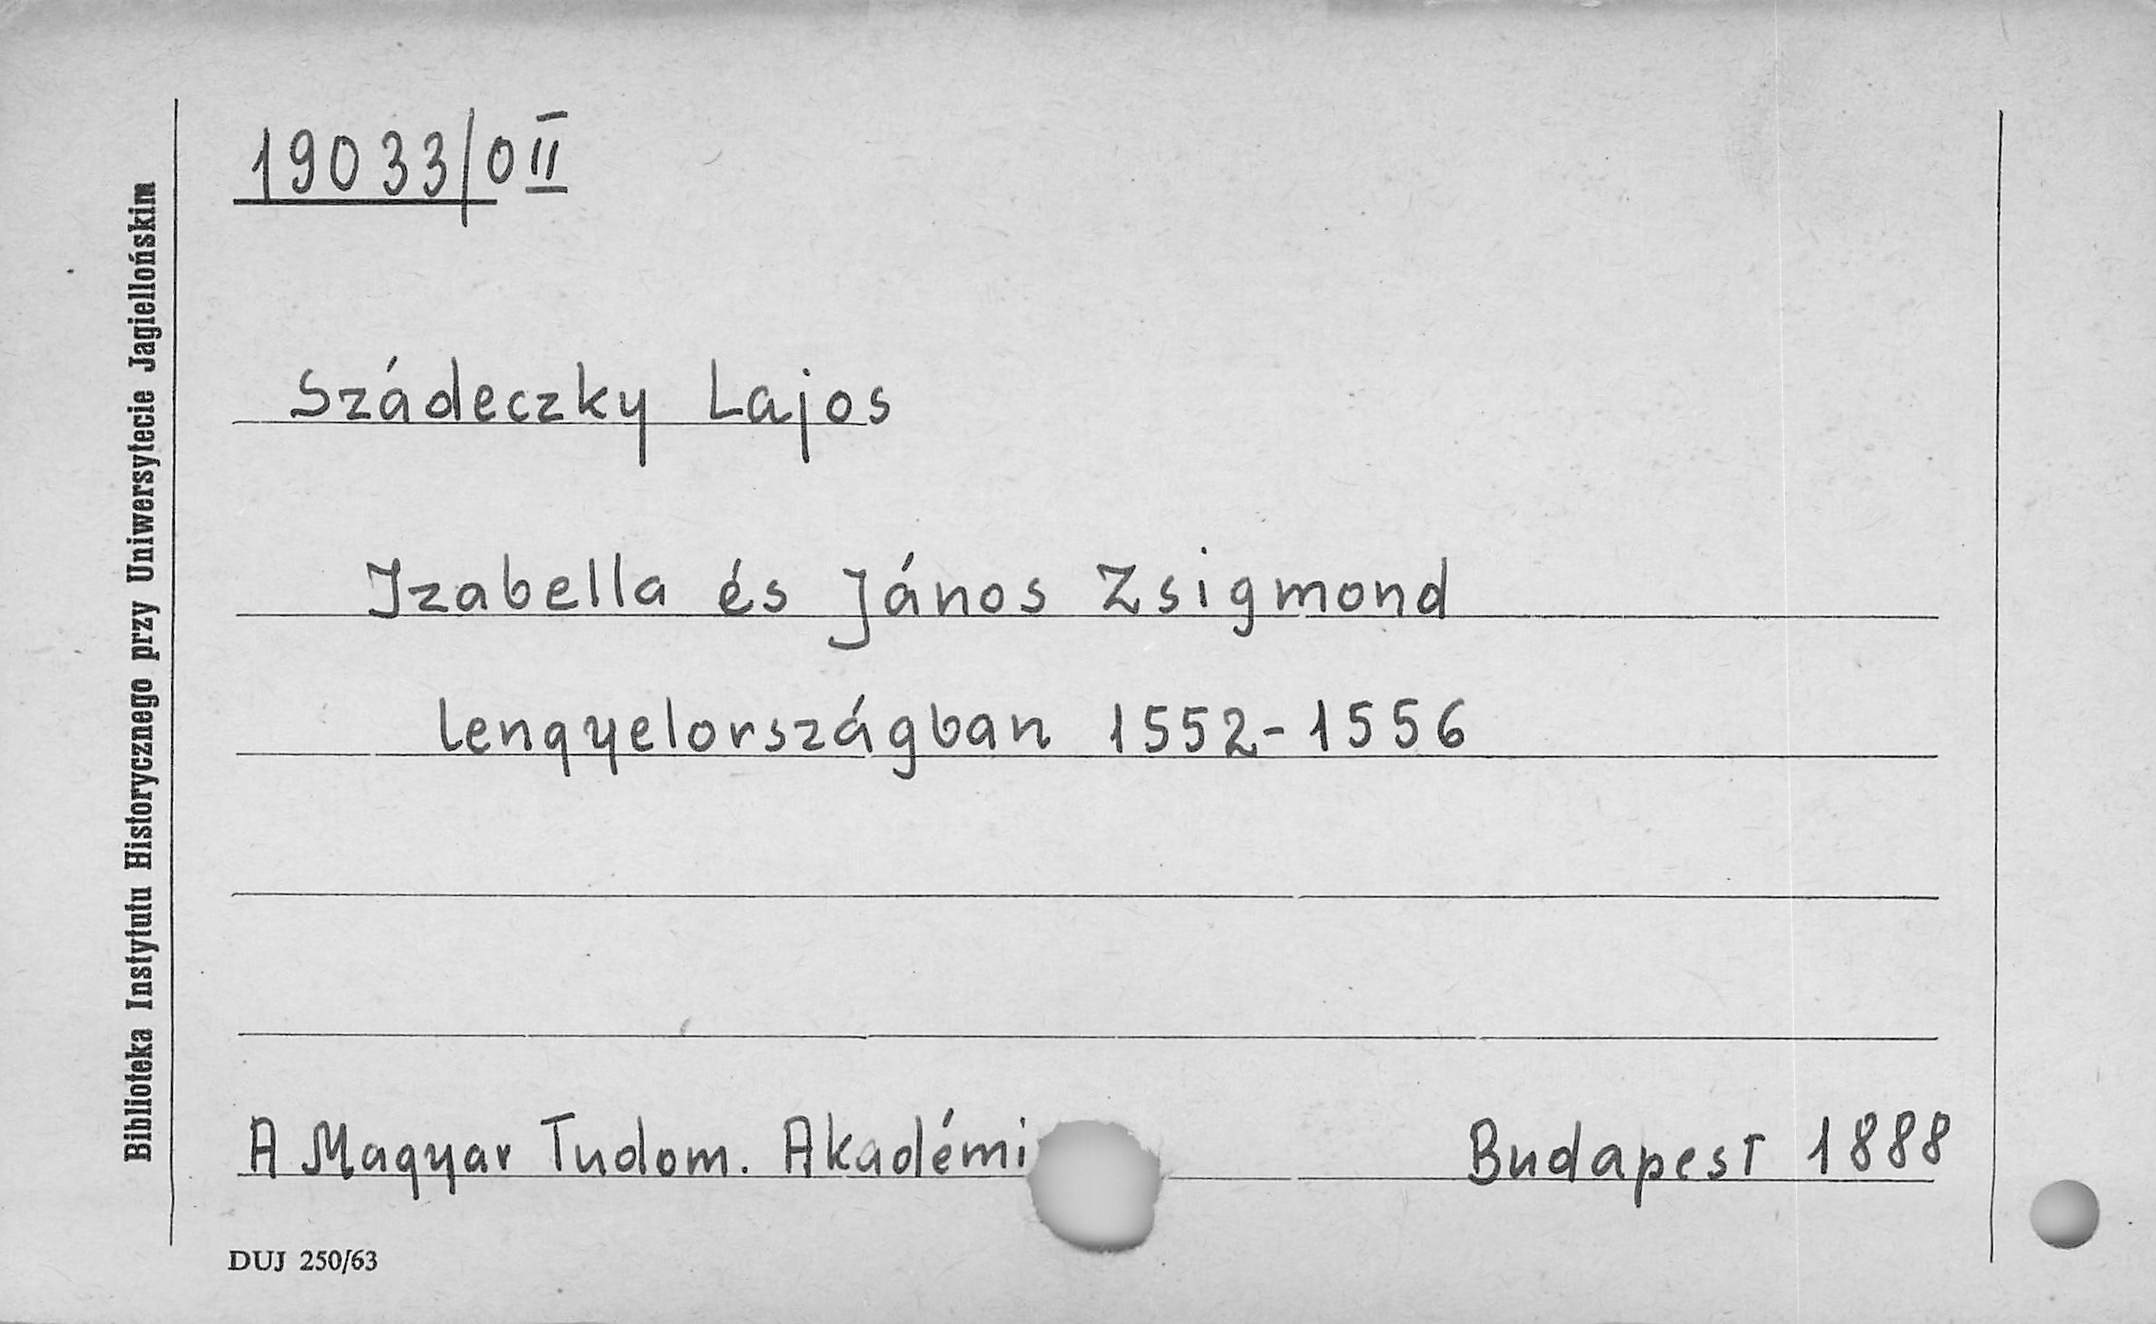 19033/0 II
Szádeczky Lajos
Izabella és János Zsigmond
lengyelországban 1552-1556
A Magyar Tudom. Akadémi
Budapest 1888
DUJ 250/63
Biblioteka Instytutu Historycznego przy Uniwersytecie Jagiellońskim